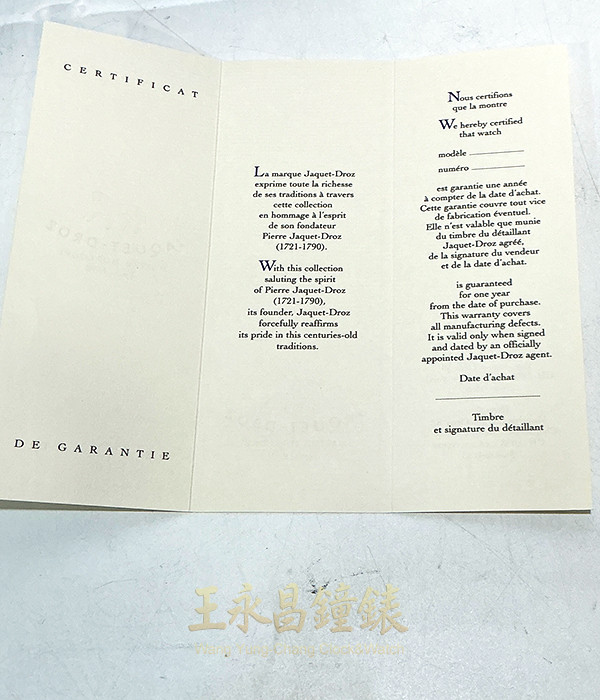 CERTIFICAT
DE GARANTIE
La marque Jaquet-Droz
exprime toute la richesse
de ses traditions à travers
cette collection
en hommage à l'esprit
de son fondateur
Pierre Jaquet-Droz
(1721-1790).
With this collection
saluting the spirit
of Pierre Jaquet-Droz
(1721-1790),
its founder, Jaquet-Droz
forcefully reaffirms
its pride in this centuries-old
traditions.
Nous certifions
que la montre
We hereby certified
that watch
modèle
numéro
est garantie une année
à compter de la date d'achat.
Cette garantie couvre tout vice
de fabrication éventuel.
Elle n'est valable que munie
du timbre du détaillant
Jaquet-Droz agréé,
de la signature du vendeur
et de la date d'achat.
is guaranteed
for one year
from the date of purchase.
This warranty covers
all manufacturing defects.
It is valid only when signed
and dated by an officially
appointed Jaquet-Droz agent.
Date d'achat
Timbre
et signature du détaillant
王永昌鐘錶